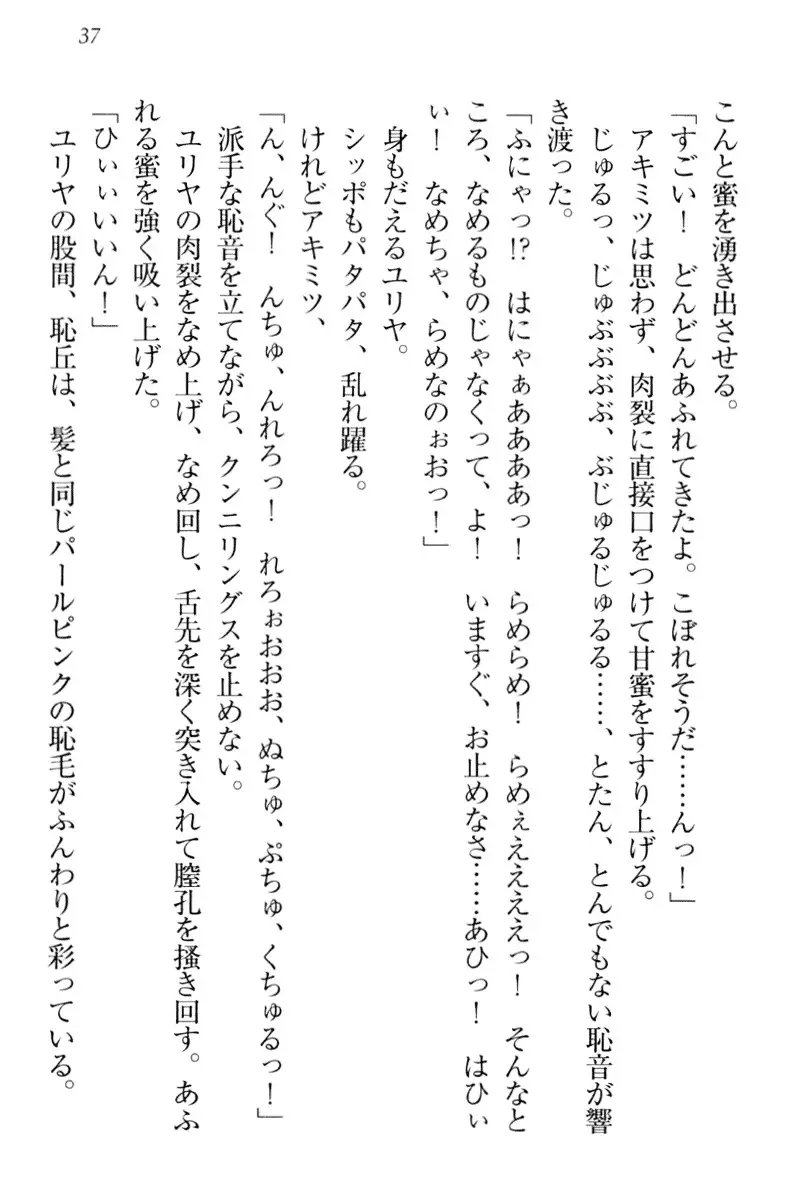 37
こんと蜜を湧き出させる。
「すごい！　どんどんあふれてきたよ。こぼれそうだ……んっ！」
アキミツは思わず、肉裂に直接口をつけて甘蜜をすすり上げる。
じゅるっ、じゅぶぶぶぶ、ぶじゅるじゅるる……、とたん、とんでもない恥音が響
き渡った。
「ふにゃっ!?　はにゃぁああああっ！　らめらめ！　らめぇええええっ！　そんなと
ころ、なめるものじゃなくって、よ！　いますぐ、お止めなさ……あひっ！　はひぃ
ぃ！　なめちゃ、らめなのぉおっ！」
身もだえるユリヤ。
シッポもパタパタ、乱れ躍る。
けれどアキミツ、
「ん、んぐ！　んちゅ、んれろっ！　れろぉおおお、ぬちゅ、ぷちゅ、くちゅるっ！」
派手な恥音を立てながら、クンニリングスを止めない。
ユリヤの肉裂をなめ上げ、なめ回し、舌先を深く突き入れて膣孔を掻き回す。あふ
れる蜜を強く吸い上げた。
「ひぃぃいいん！」
ユリヤの股間、恥丘は、髪と同じパールピンクの恥毛がふんわりと彩っている。